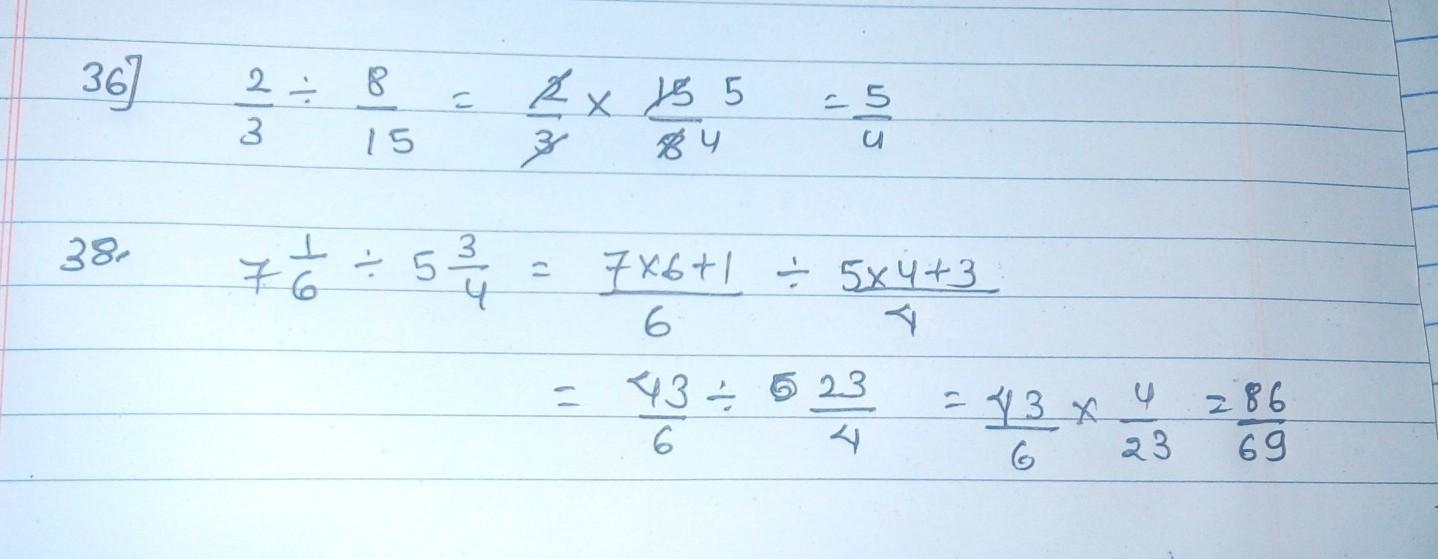 36] 2/3 ÷ 8/15 = 2/3 × 15/8 5/4 = 5/4
38. 7 1/6 ÷ 5 3/4 = 7×6+1/6 ÷ 5×4+3/4
= 43/6 ÷ 23/4 = 43/6 × 4/23 = 86/69